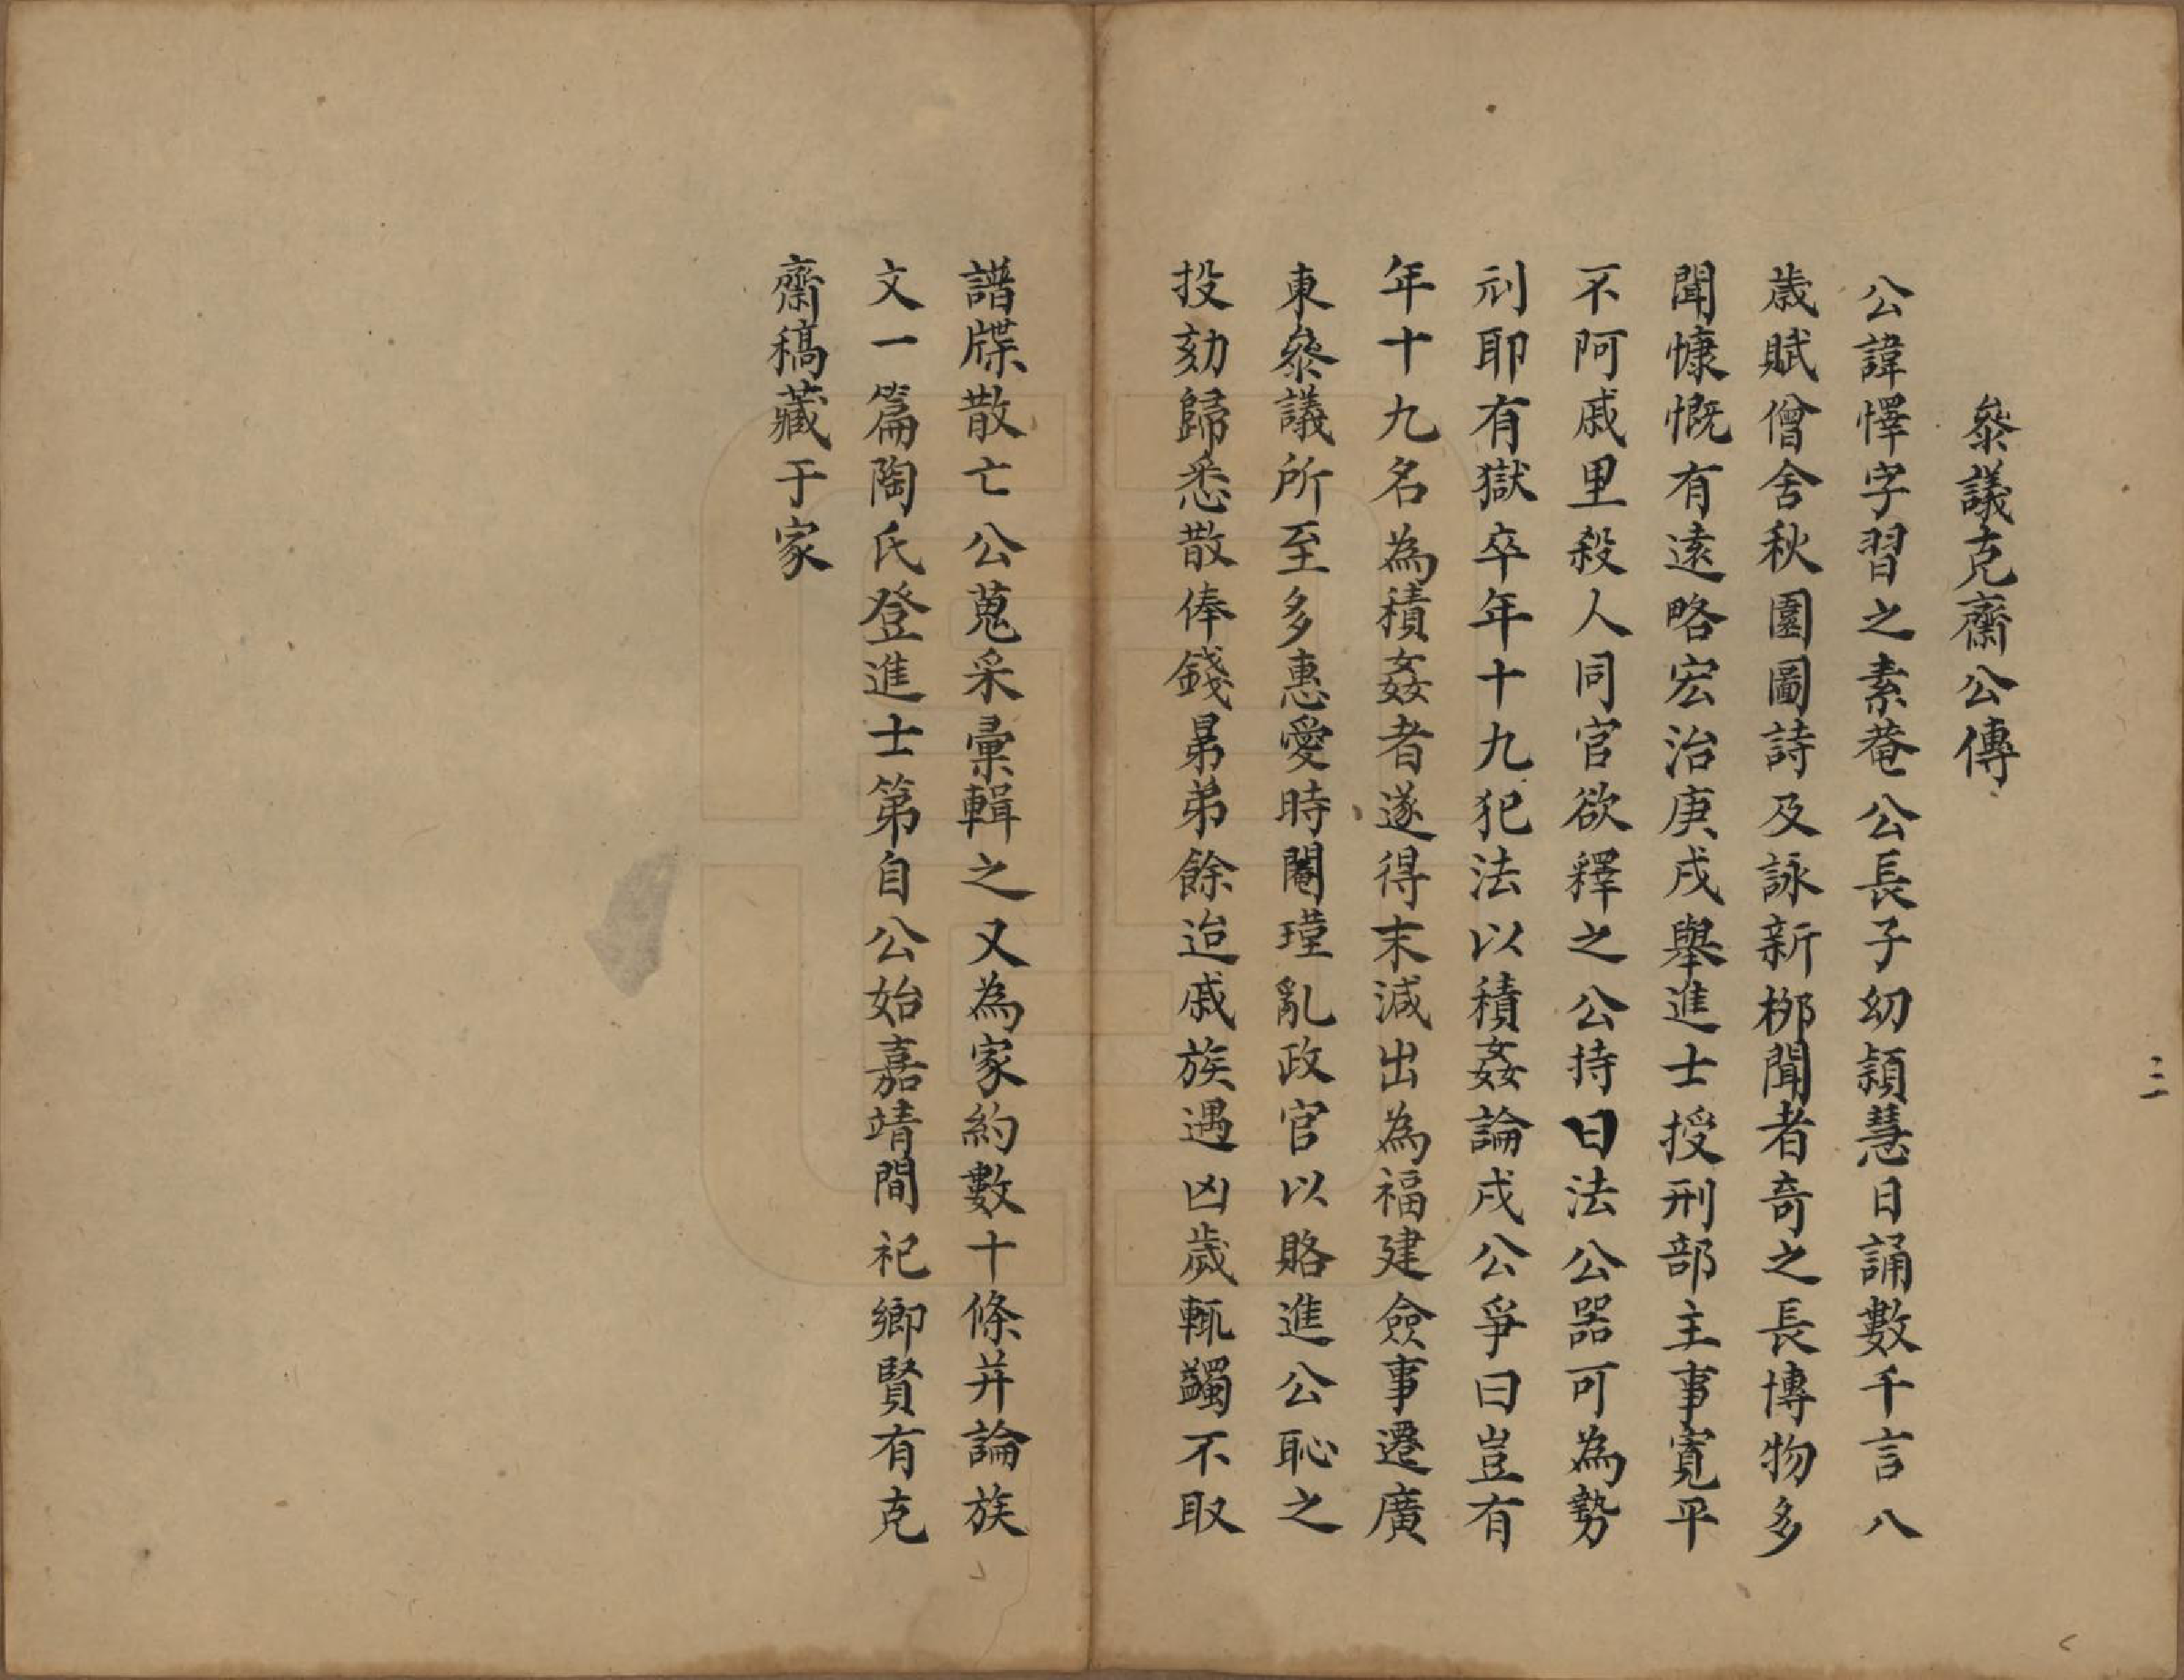 參議克齋公傳
公諱懌字習之素菴公長子幼穎慧日誦數千言八
歲賦僧舍秋園圖詩及詠新栁聞者奇之長博物多
聞慷慨有遠略宏治庚戌舉進士授刑部主事寬平
不阿戚里殺人同官欲釋之公持曰法公器可為勢
刓耶有獄卒年十九犯法以積姦論戍公爭曰豈有
年十九名為積姦者遂得末減出為福建僉事遷廣
東參議所至多惠愛時閹瑾亂政官以賂進公恥之
投劾歸悉散俸錢昪弟餘迨戚族遇凶歲輒蠲不取
譜牒散亡公蒐采彙輯之又為家約數十條并論族
文一篇陶氏登進士第自公始嘉靖間祀鄉賢有克
齋稿藏于家
三